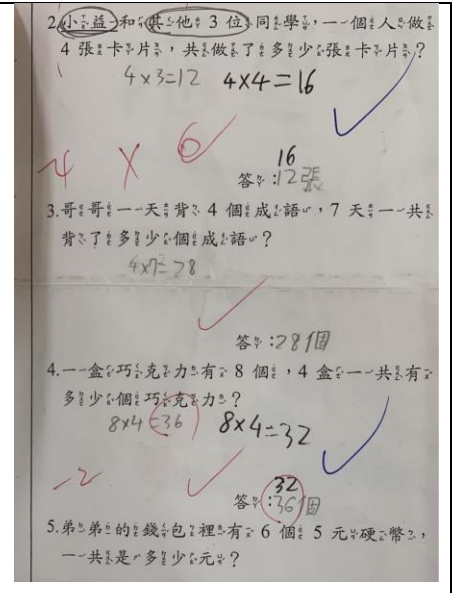 2.小益和其他3位同學,一個人做
4張卡片,共做了多少張卡片?
4×3=12 4×4=16
-4
16
答:12張
3.哥哥一天背4個成語,7天一共
背了多少個成語?
4×7=28
答:28個
4.一盒巧克力有8個,4盒一共有
多少個巧克力?
8×4=36 8×4=32
-2
32
答:36個
5.弟弟的錢包裡有6個5元硬幣,
一共是多少元?